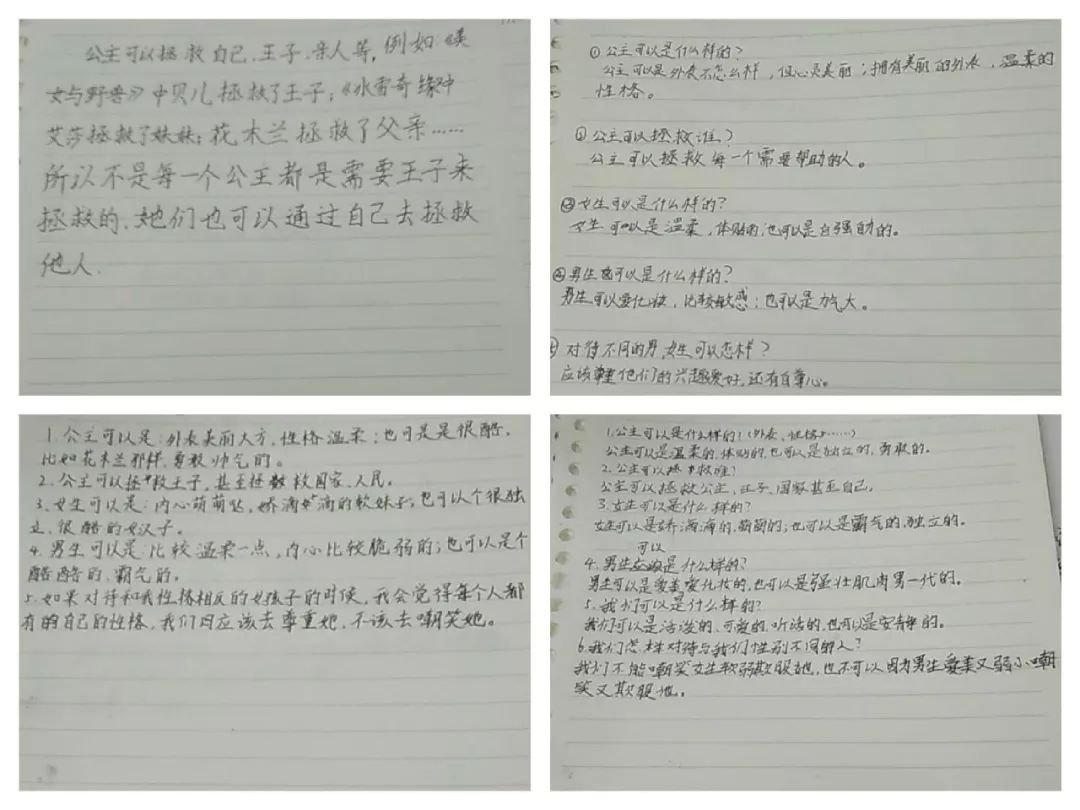 公主可以拯救自己、王子、亲人等,例如:《美
女与野兽》中贝儿拯救了王子;《冰雪奇缘》中
艾莎拯救了妹妹;花木兰拯救了父亲……
所以不是每一个公主都是需要王子来
拯救的,她们也可以通过自己去拯救
他人.
①公主可以是什么样的?
公主可以是外表不怎么样,但心灵美丽;拥有美丽的外表,温柔的
性格。
公主可以拯救谁?
公主可以拯救每一个需要帮助的人。
③女生可以是什么样的?
女生可以是温柔,体贴的;也可以是自强自助的。
④男生可以是什么样的?
男生可以爱化妆,比较敏感;也可以是力气大。
对待不同的男,女生可以怎样?
应该尊重他们的兴趣爱好,还有自尊心。
1.公主可以是:外表美丽大方,性格温柔;也可是是很酷,
比如花木兰那样,勇敢帅气的。
2.公主可以拯救王子,甚至拯救国家、人民。
3.女生可以是:内心萌萌哒,娇滴滴的软妹子;也可以个很独
立,很酷的女汉子。
4.男生可以是:比较温柔一点,内心比较脆弱的;也可以是个
酷酷的,霸气的。
5.如果对待和我性格相反的女孩子的时候,我会觉得每个人都
有的自己的性格,我们因应该去尊重她,不该去嘲笑她。
1.公主可以是什么样的?(外表、性格……)
公主可以是温柔的,体贴的,也可以是独立的,勇敢的。
2.公主可以拯救谁?
公主可以拯救公主、王子、国家甚至自己。
3.女生可以是什么样的?
女生可以是娇滴滴的,萌萌的;也可以是霸气的,独立的。
可以
4.男生是什么样的?
男生可以是爱美爱化妆的,也可以是强壮肌肉男一代的。
5.我们可以是什么样的?
我们可以是活泼的、可爱的、听话的,也可以是安静的。
6.我们怎样对待与我们性别不同的人?
我们不能嘲笑女生软弱欺服她,也不可以因为男生爱美又弱小嘲
笑又欺服他。